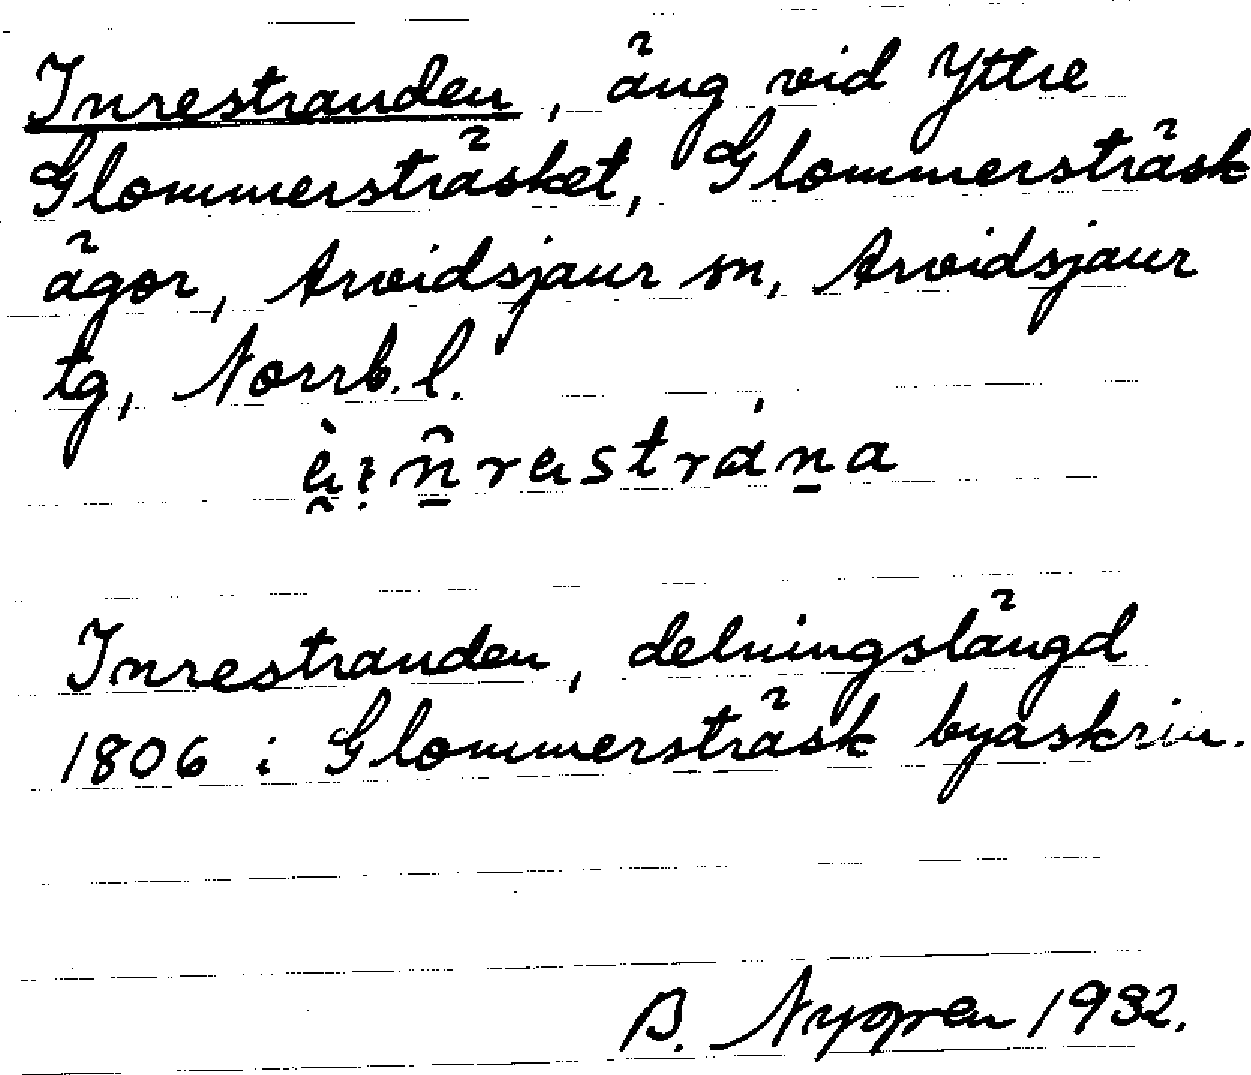 Inrestranden, äng vid Yttre
Glommersträsket, Glommersträsk
ägor, Arvidsjaur sn, Arvidsjaur
tg, Norrb. l.
Inrestranden, delningslängd
1806 i Glommersträsk byaskrin.
B. Nygren 1932.